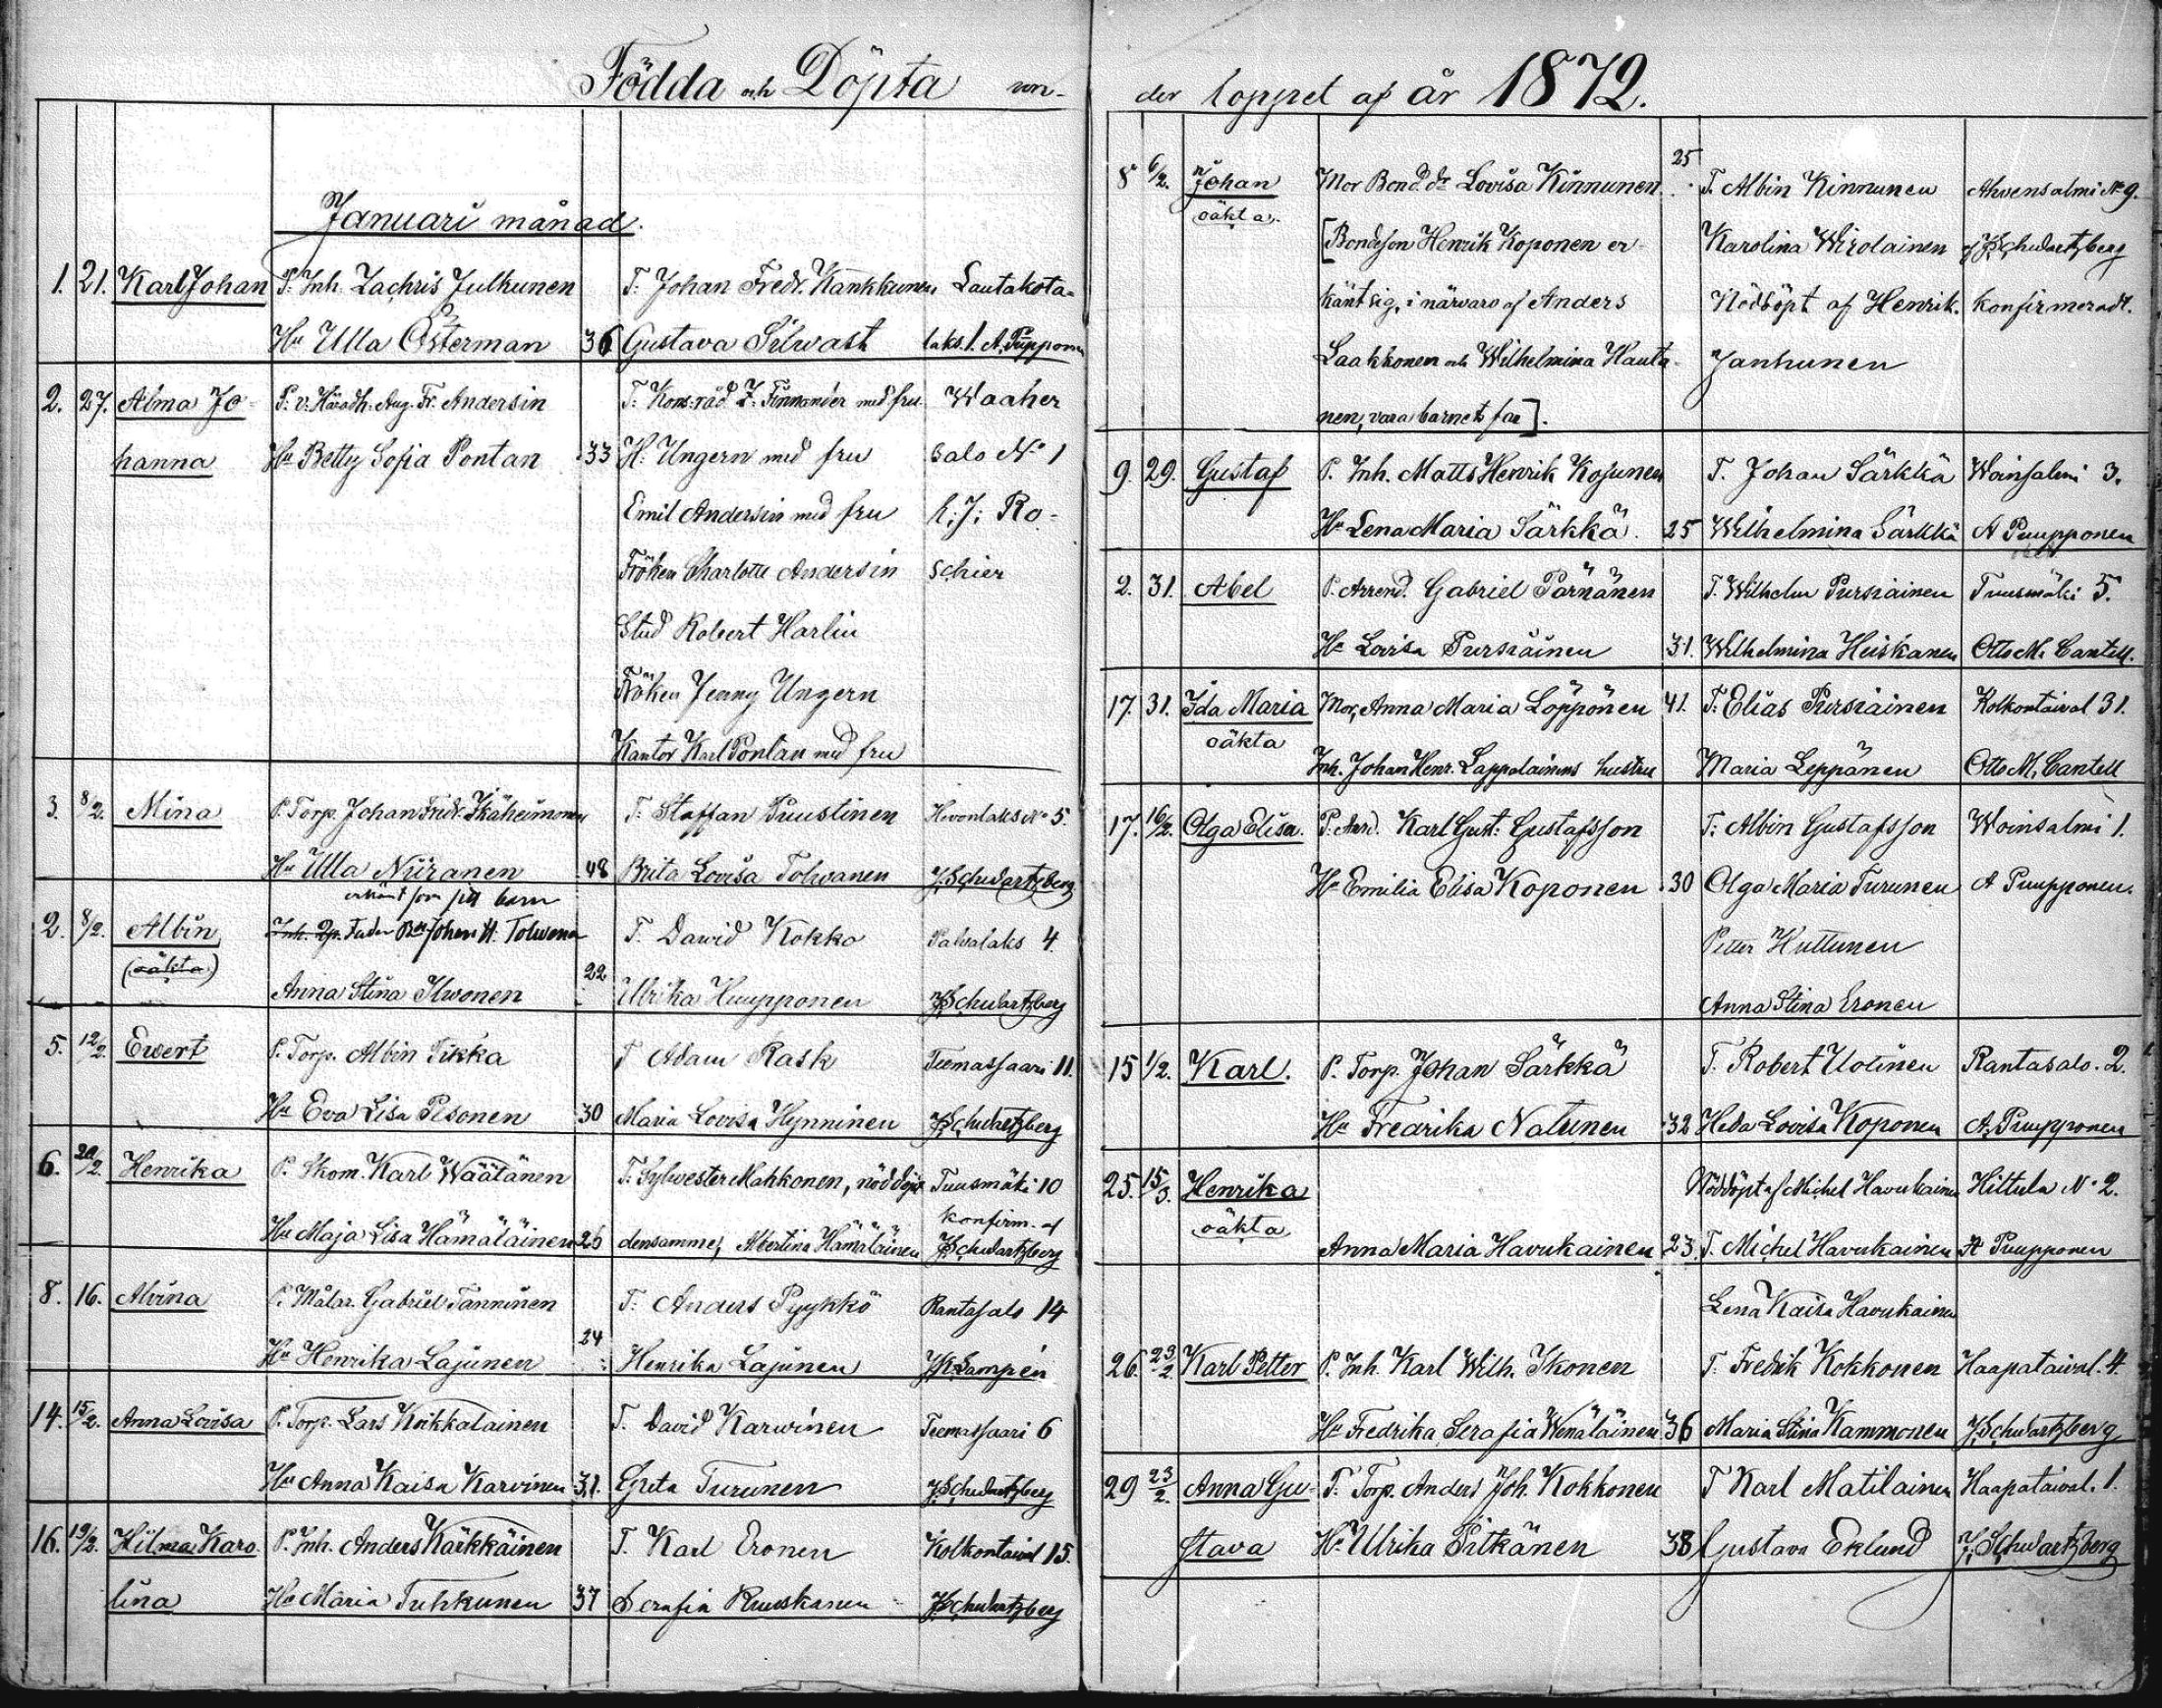 Födda och Döpta un-
Januari månad.
1. 21. Karl Johan P. Inh. Zachris Julkunen T. Johan Fredr. Kankkunen Lautakota-
Hu Ulla Österman 36 Gustava Silvast laks. 1. A. Pupponen
2. 27. Alma Jo- P. v. Häradh. Aug. Fr. Andersin T. Kons:råd Z. Finnander med fru Waaher
hanna Hu Betty Sofia Pontan 33 H. Ungern med fru salo No 1
Emil Andersin med fru K. J. Ro-
Fröken Charlotte Andersin schier
Stud Robert Harlin
Fröken Jenny Ungern
Kantor Karl Pontan med fru
3. 8/2. Mina P. Torp. Johan Fredr. Ikäheimonen T. Staffan Puustinen Hevonlaks No 5.
Hu Ulla Niiranen 48 Brita Lovisa Tolvanen J. Schwartzberg
erkänt som sitt barn
2. 8/2. Albin Fader Johan H. Tolwanen T. Dawid Kokko Palvalaks 4
(oäkta) Anna Stina Ilwonen 22 Ulrika Huupponen J Schwartzberg
5. 12/2. Ewert P. Torp. Albin Tikka T Adam Rask Teemassaari 11.
Hu Eva Lisa Pesonen 30 Maria Lovisa Hynninen J Schwartzberg
6. 20/2. Henrika P. Skom. Karl Wäätänen T. Sylvester Mahkonen, nöddöpt Tuusmäki 10
Hu Maja Lisa Hämäläinen 26 densamme, Albertina Hämäläinen konfirm. af J Schwartzberg
8. 16. Alvina P. Målar. Gabriel Tanninen T. Anders Pyykkö Rantasalo 14
Hu Henrika Lajunen 24 Henrika Lajunen J K Lampén
14. 15/2. Anna Lovisa P. Torp. Lars Koikkalainen T. David Karwinen Teemassaari 6
Hu Anna Kaisa Karvinen 31. Greta Turunen J. Schwartzberg
16. 19/2. Hilma Karo- P. Inh. Anders Kärkkäinen T. Karl Eronen Kolkontaival 15.
lina Hu Maria Tuhkunen 37 Serafia Ruuskanen J Schwartzberg
der loppet af år 1872.
8 6/2. Johan Mor Bond. dr Lovisa Kinnunen 25 T. Albin Kinnunen Ahvensalmi No 9.
oäkta. [Bondeson Henrik Koponen er- Karolina Wirolainen af J Schwartzberg
känt sig, i närvaro af Anders Nöddöpt af Henrik. konfirmeradt.
Laakkonen och Wilhelmina Hauta- Janhunen
nen, vara barnets far].
9. 29. Gustaf P. Inh. Matts Henrik Kosunen T. Johan Särkkä Woinsalmi 3.
Hu Lena Maria Särkkä. 25 Wilhelmina Särkkä A Puupponen
2. 31. Abel P. Arrend. Gabriel Pärnänen T. Wilhelm Pursiainen Tuusmäki 5.
Hu Lovisa Pursiäinen 31. Wilhelmina Heiskanen Otto M. Cantell.
17. 31. Ida Maria Mor, Anna Maria Löppönen 41. T. Elias Pursiäinen Kolkontaival 31.
oäkta Inh. Johan Henr. Lappalainens hustru Maria Leppänen Otto M. Cantell
17. 16/2. Olga Elisa. P. Arrd. Karl Gust. Gustafsson T. Albin Gustafsson Woinsalmi 1.
Hu Emilia Elisa Koponen 30 Olga Maria Turunen A Puupponen.
Petter Huttunen
Anna Stina Eronen
15 1/2. Karl. P. Torp. Johan Särkkä T. Robert Uotinen Rantasalo. 2.
Hu Fredrika Natunen 32 Heda Lovisa Koponen A. Puupponen
25. 15/3. Henrika Nöddöpt af Michel Havukainen Hittula No 2.
oäkta Anna Maria Havukainen 23. T. Michel Havukainen A Puupponen
Lena Kaisa Havukainen
26. 23/2. Karl Petter P. Inh. Karl Wilh. Ikonen T. Fredrik Kokkonen Haapataival. 4.
Hu Fredrika Serafia Wenäläinen 36 Maria Stina Kammonen J. Schwartzberg
29 23/2. Anna Gu- P. Torp. Anders Joh. Kokkonen T Karl Matilainen Haapataival. 1.
stava Hu Ulrika Pitkänen 38 Gustava Eklund J. Schwartzberg